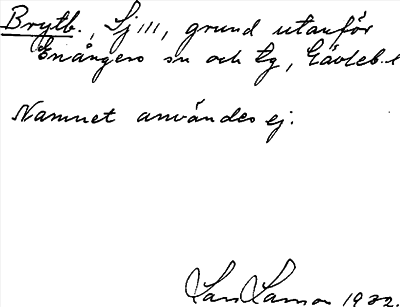 Brytb., Sj III, grund utanför
Enångers sn och tg, Gävleb. l
Namnet användes ej.
1932.